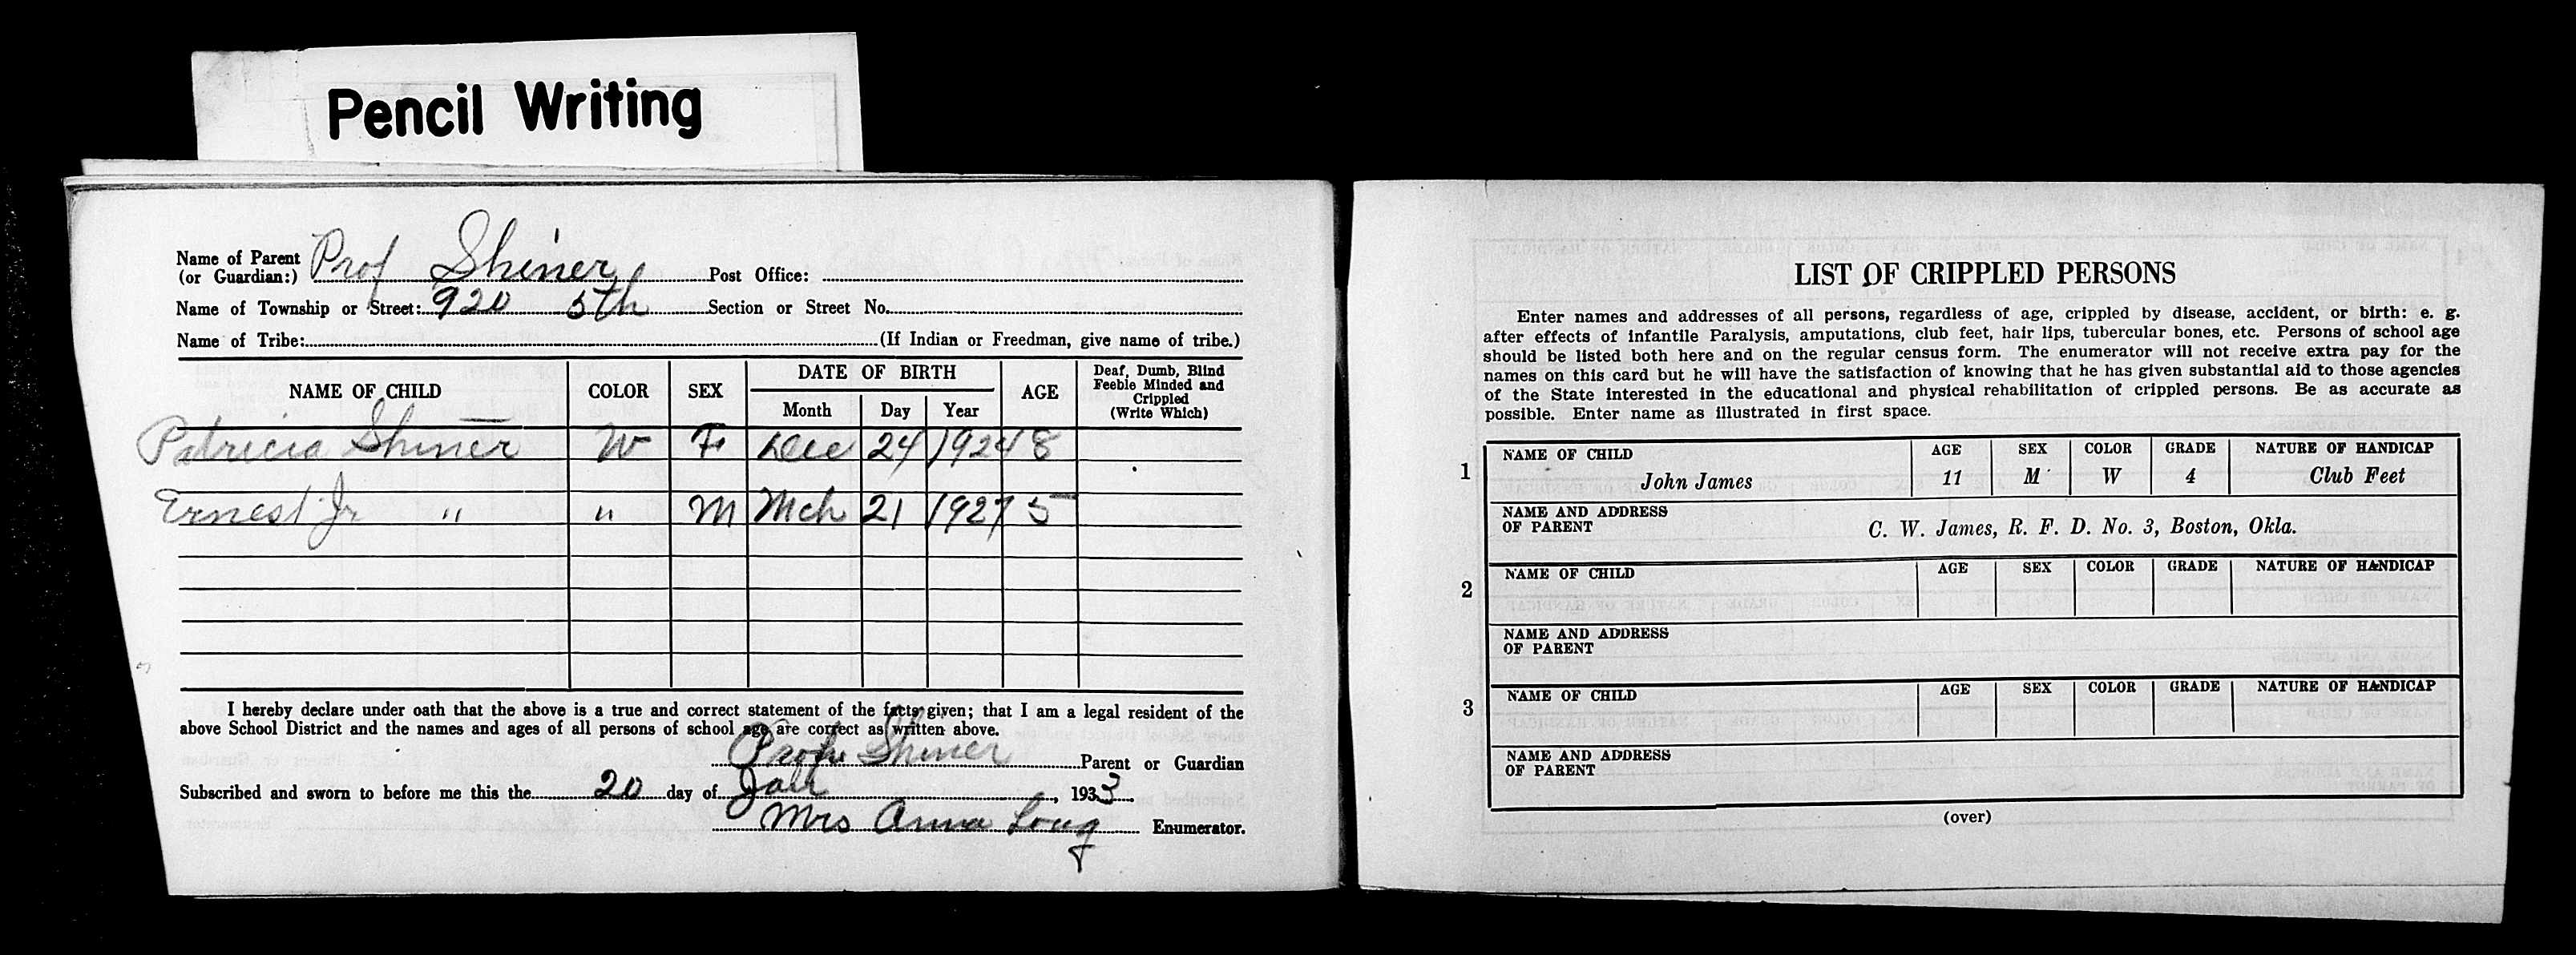 Pencil Writing
Name of Parent
(or Guardian:) Prof Shiner Post Office:
Name of Township or Street: 920 5th Section or Street No.
Name of Tribe: (If Indian or Freedman, give name of tribe.)
NAME OF CHILD COLOR SEX DATE OF BIRTH AGE Deaf, Dumb, Blind Feeble Minded and Crippled (Write Which)
Month Day Year
Patricia Shiner W F Dec 24 1924 8
Ernest Jr " " M Mch 21 1927 5
I hereby declare under oath that the above is a true and correct statement of the facts given; that I am a legal resident of the
above School District and the names and ages of all persons of school age are correct as written above.
Prof Shiner Parent or Guardian
Subscribed and sworn to before me this the 20 day of Jan, 1933
Mrs Anna Long Enumerator.
LIST OF CRIPPLED PERSONS
Enter names and addresses of all persons, regardless of age, crippled by disease, accident, or birth: e. g.
after effects of infantile Paralysis, amputations, club feet, hair lips, tubercular bones, etc. Persons of school age
should be listed both here and on the regular census form. The enumerator will not receive extra pay for the
names on this card but he will have the satisfaction of knowing that he has given substantial aid to those agencies
of the State interested in the educational and physical rehabilitation of crippled persons. Be as accurate as
possible. Enter name as illustrated in first space.
1 NAME OF CHILD AGE SEX COLOR GRADE NATURE OF HANDICAP
John James 11 M W 4 Club Feet
NAME AND ADDRESS
OF PARENT C. W. James, R. F. D. No. 3, Boston, Okla.
2 NAME OF CHILD AGE SEX COLOR GRADE NATURE OF HANDICAP
NAME AND ADDRESS
OF PARENT
3 NAME OF CHILD AGE SEX COLOR GRADE NATURE OF HANDICAP
NAME AND ADDRESS
OF PARENT
(over)